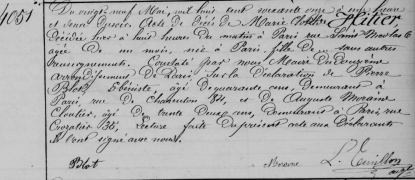 4051
Du vingt neuf Mai, mil huit cent soixante onze à une heure
et demie Acte de Décès de Marie Clotilde Hilier
Décédée hier à huit heures du matin à Paris rue Saint Nicolas 6
agée de un mois, née à Paris, fille de sans autres
renseignements. Constaté par nous Maire du Douzième
arrondissement de Paris sur la déclaration de Pierre
Blot Ebéniste, âgé de quarante ans, demeurant à
Paris, rue de Charenton 84, et de Auguste Morane
âgé de trente deux ans, demeurant à Paris rue
Crozatier 35, Lecture faite du présent acte aux Déclarants
Ils ont signé avec nous.
Blot Morane L. Turillon